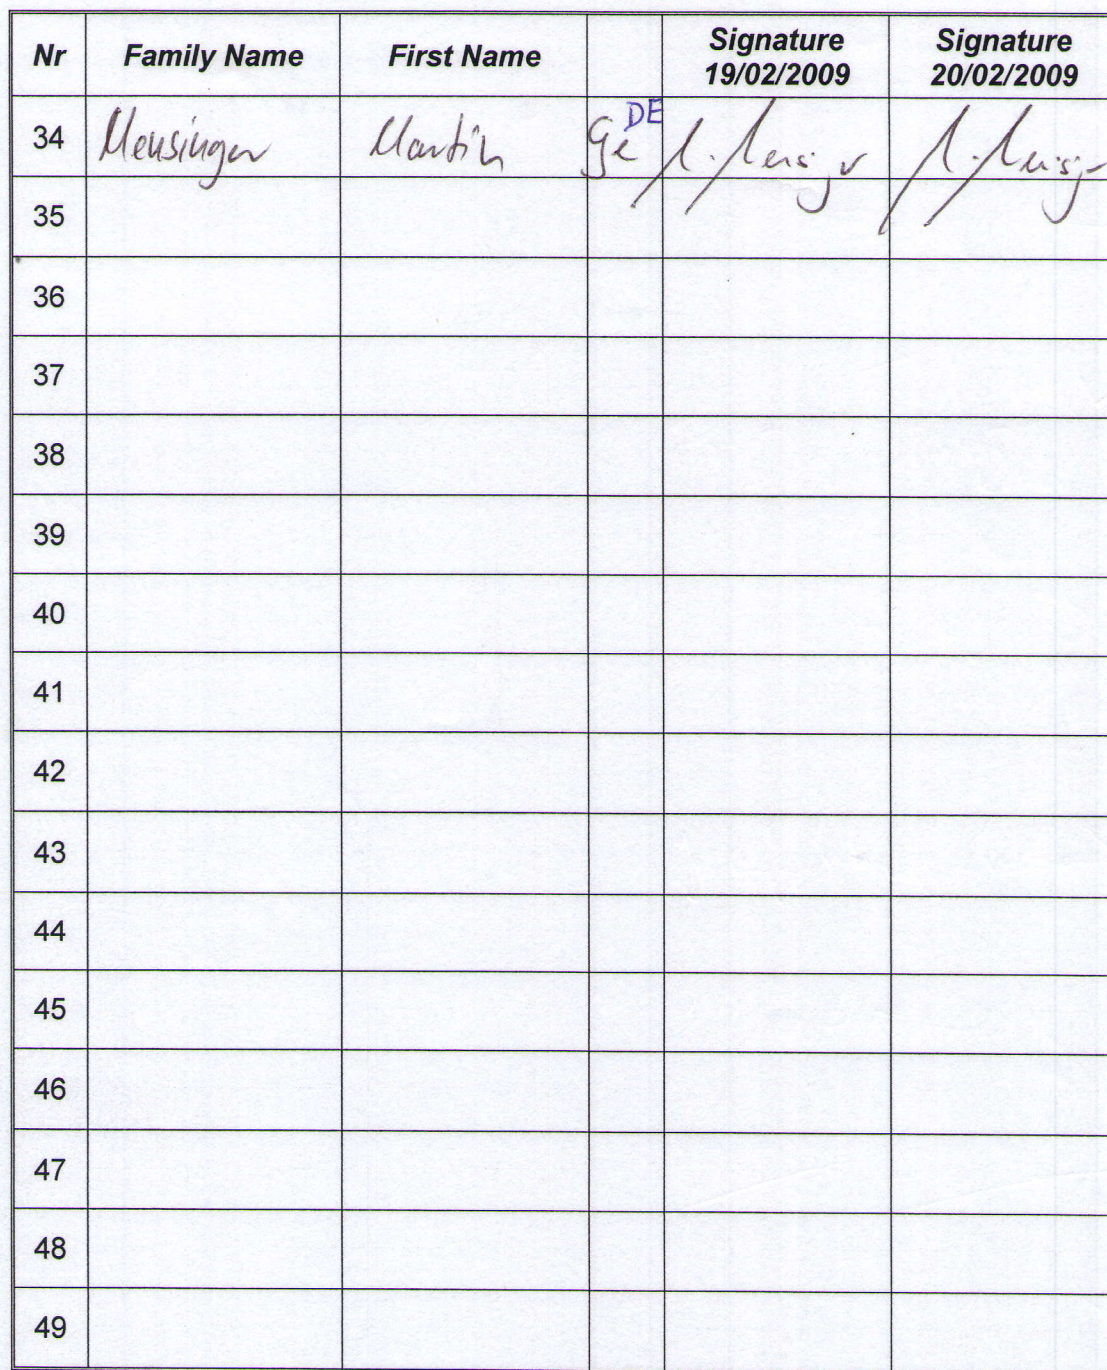 Nr Family Name First Name Signature 19/02/2009 Signature 20/02/2009
34 Mensinger Martin Ge DE
35
36
37
38
39
40
41
42
43
44
45
46
47
48
49